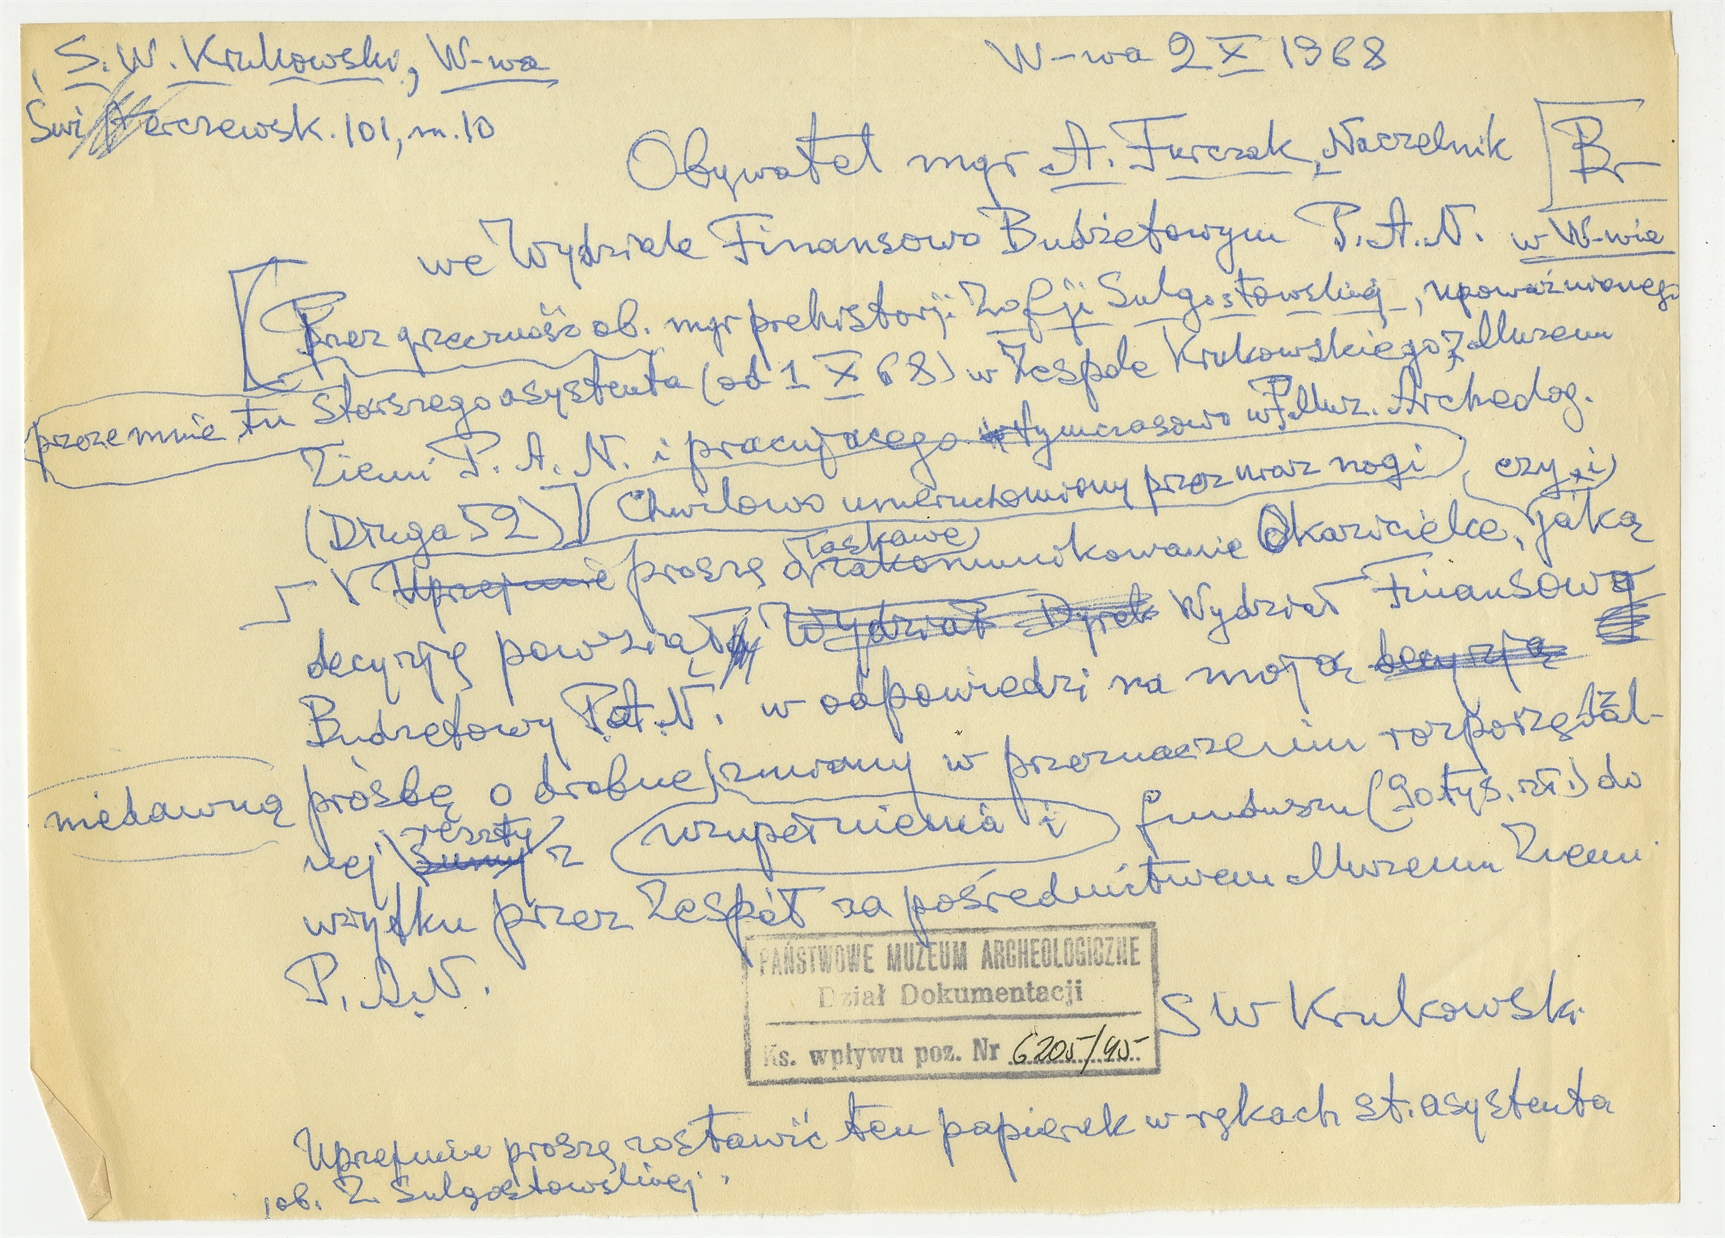 S. W. Krukowski, W-wa
W-wa 2 X 1968
Świerczewsk. 101, m. 10
Obywatel mgr A. Furczak, Naczelnik
Br
we Wydziale Finansowo Budżetowym P.A.N. w W-wie
Przez grzeczność ob. mgr prehistorji Zofji Sulgostowskiej, upoważnionego
przeze mnie, tu starszego asystenta (od 1 X 68) w Zespole Krukowskiego z Muzeum
Ziemi P. A. N. i pracującego tymczasowo w P. Muz. Archeolog.
(Długa 52)] Chwilowo unieruchomiony przez uraz nogi, czyli
Uprzejmie proszę o łaskawe zakomunikowanie Okazicielce, jaką
decyzję powziął Wydział Dyrek Wydział Finansowo
Budżetowy P.A.N. w odpowiedzi na moją decyzją
niedawną prośbę o drobne zmiany w przeznaczeniu rozporządzal-
nej sumy reszty z uzupełnienia i funduszu (90 tys. zł.) do
użytku przez Zespół za pośrednictwem Muzeum Ziemi
P. A. N.
PAŃSTWOWE MUZEUM ARCHEOLOGICZNE
Dział Dokumentacji
Ks. wpływu poz. Nr 6205/95
S W Krukowski
Uprzejmie proszę zostawić ten papierek w rękach st. asystenta
ob. Z. Sulgostowskiej.